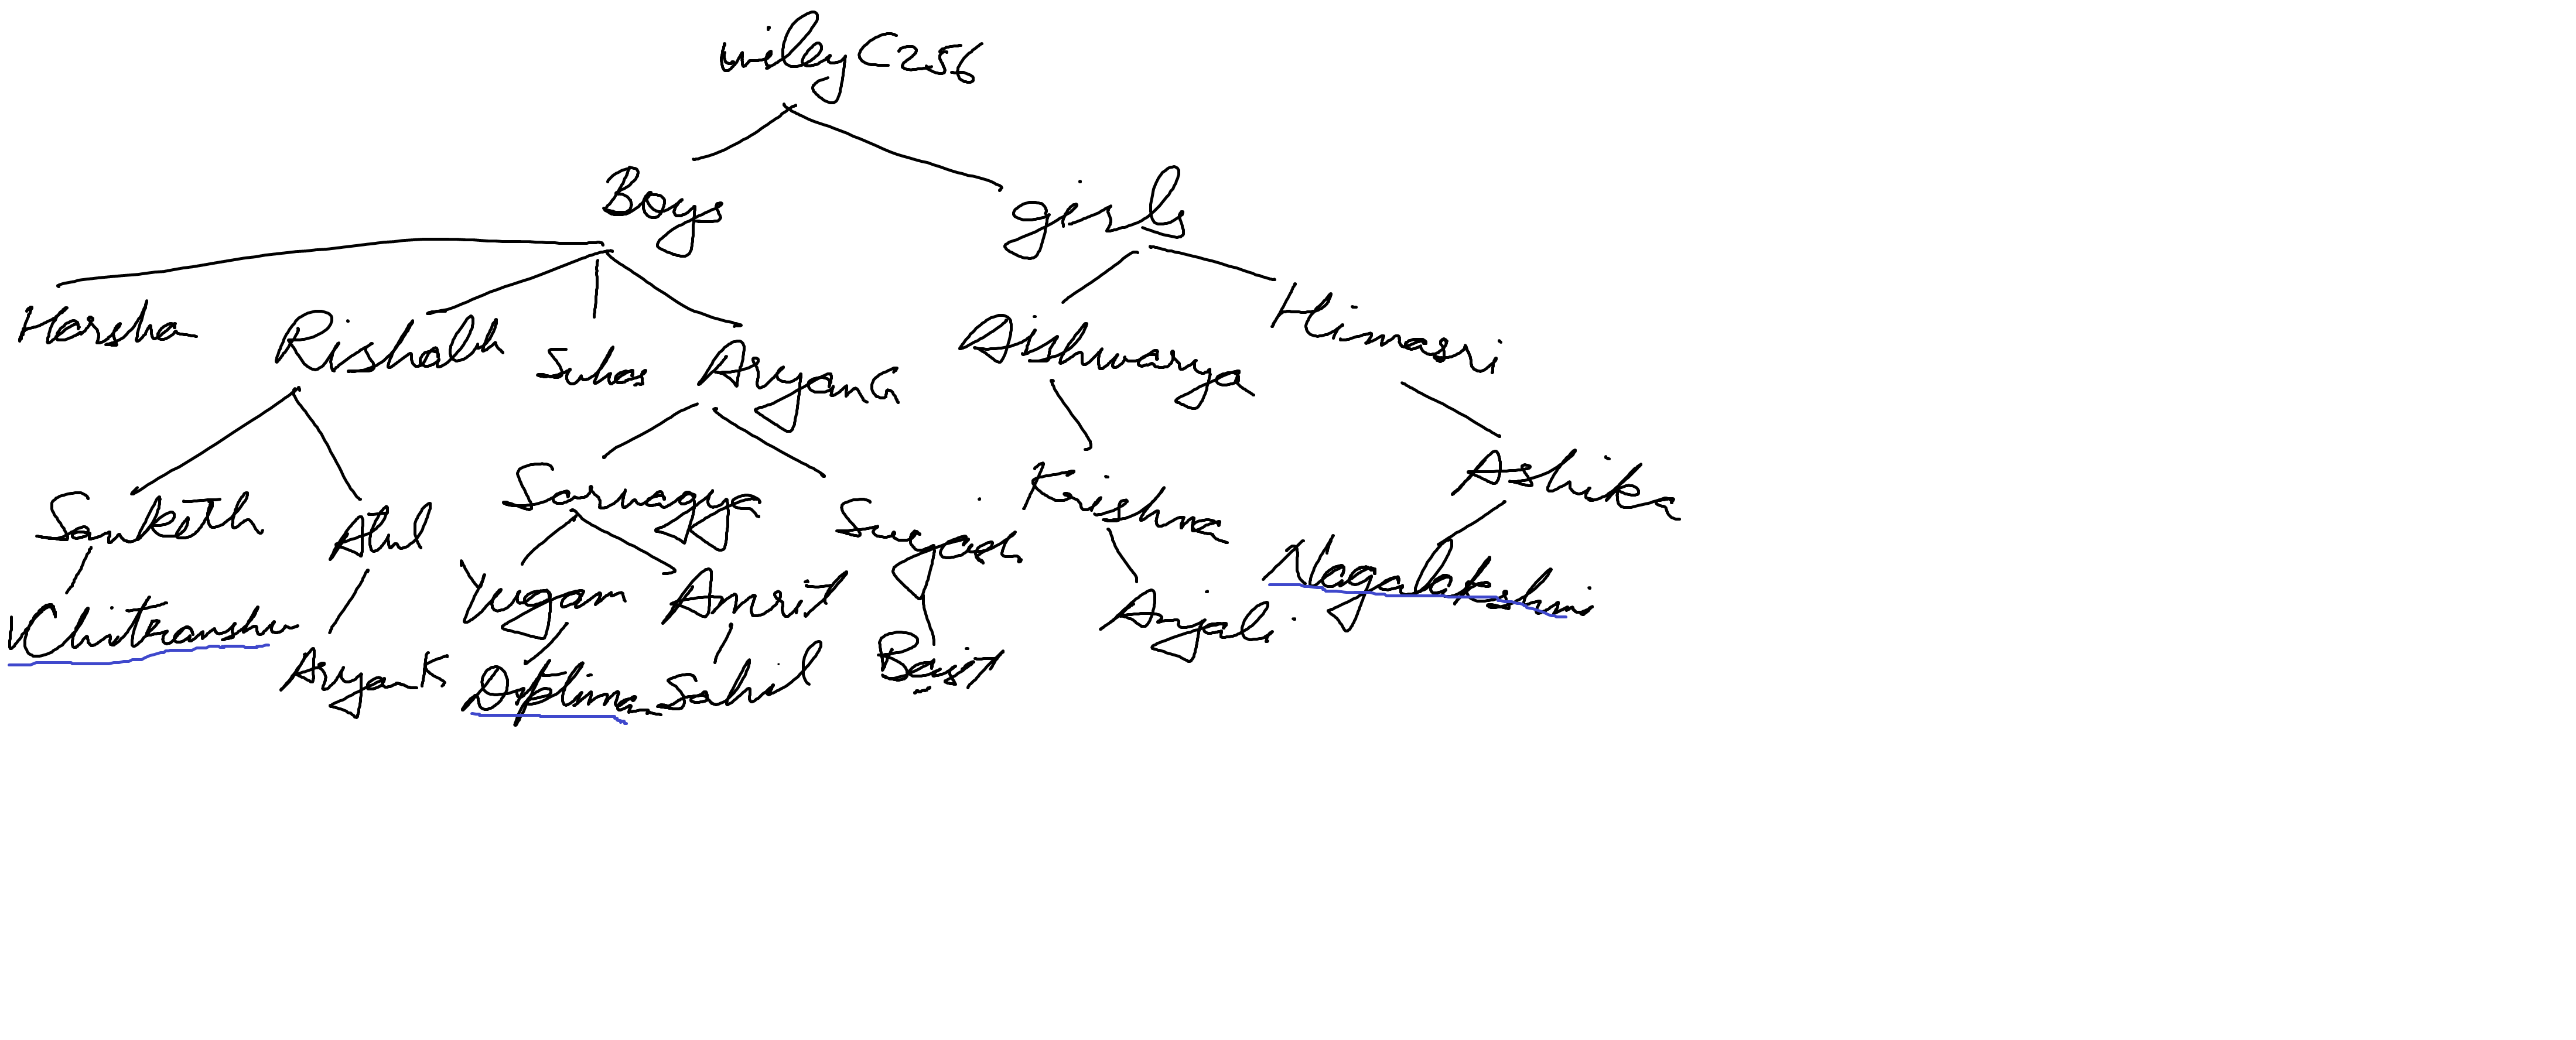 wileyC256
Boys girls
Harsha Rishabh Suhas AryanG Aishwarya Himasri
Sanketh Atul Sarvagya Suyash Krishna Ashika
Chitranshu AryanK Yugam Amrit Anjali Nagalakshmi
Diptiman Sahil Basit